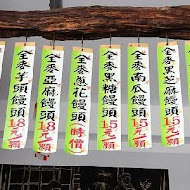 全麥羊羹饅頭18元/顆
全麥亞麻饅頭18元/顆
全麥蔥花饅頭時價
全麥黑糖饅頭15元/顆
全麥南瓜饅頭15元/顆
全麥黑芝麻饅頭15元/顆